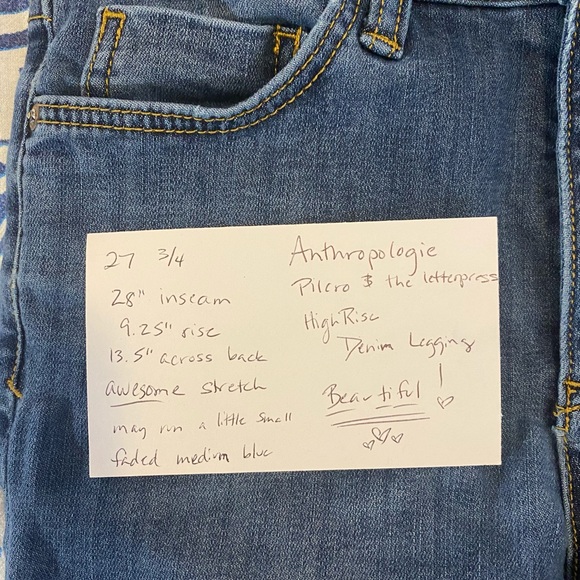 27 3/4
28" inseam
9.25" rise
13.5" across back
awesome stretch
may run a little small
faded medium blue
Anthropologie
Pilcro & the letterpress
High Rise
Denim Legging
Beautiful!